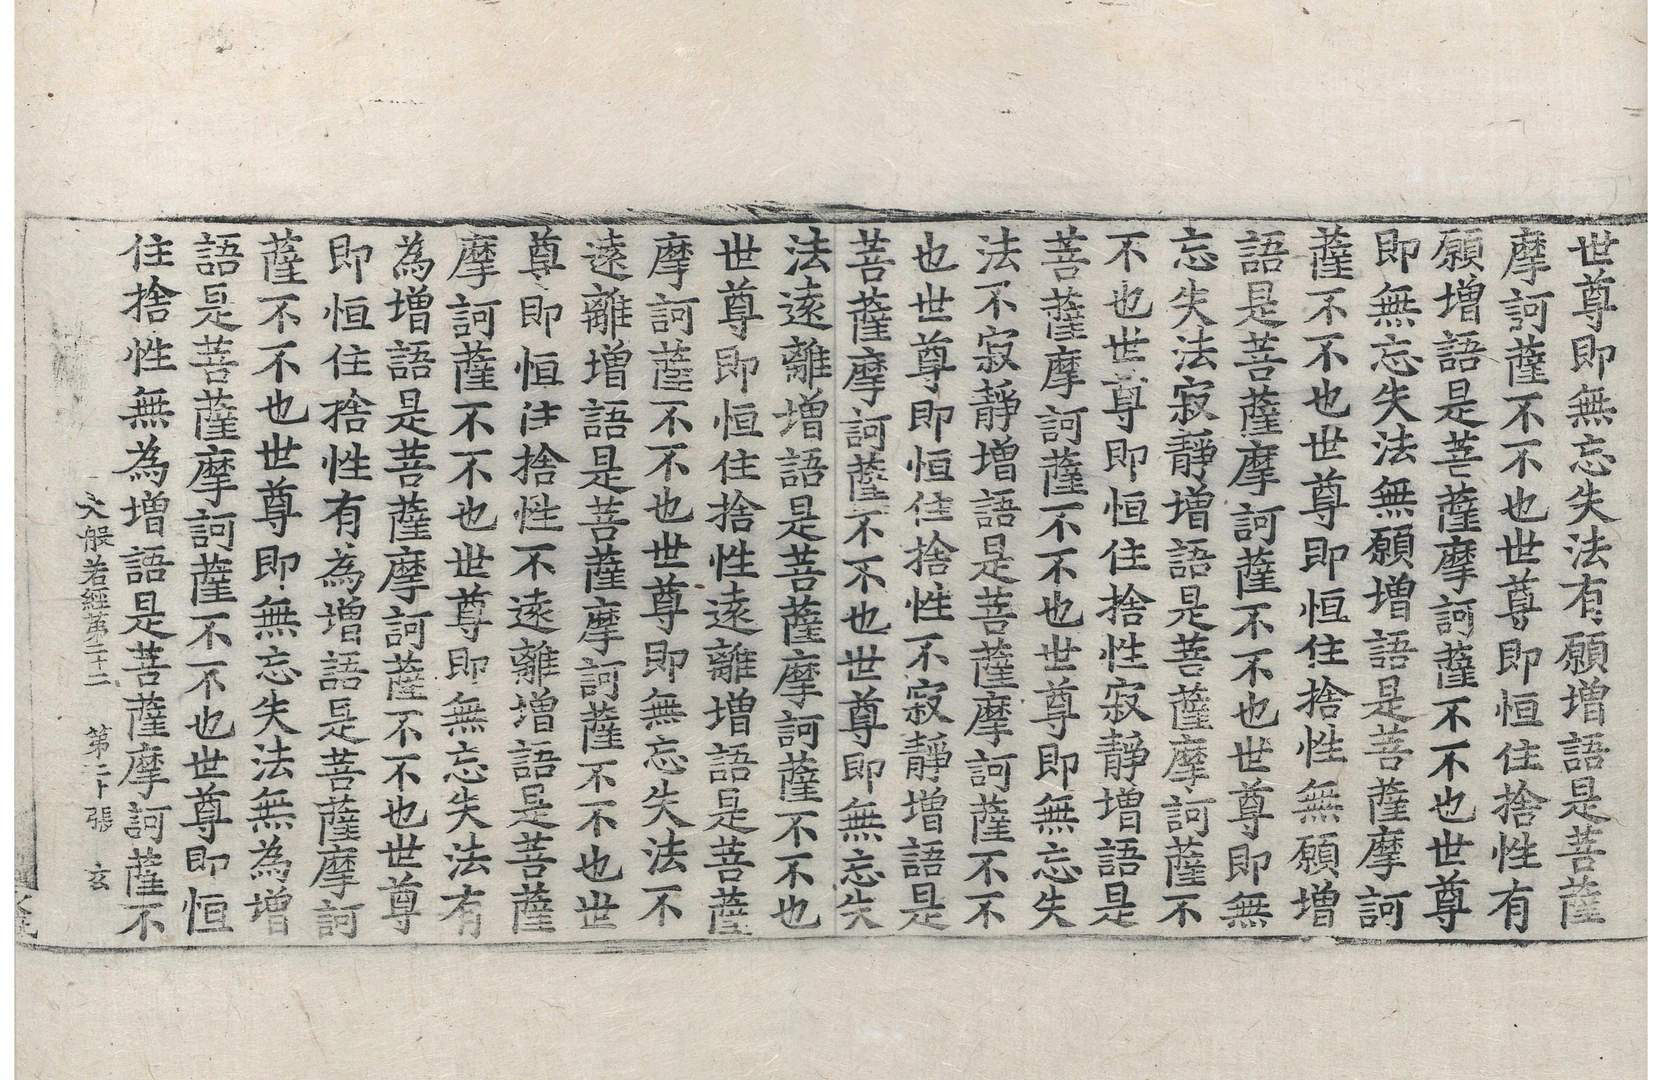 世尊即無忘失法有願增語是菩薩
摩訶薩不不也世尊即恒住捨性有
願增語是菩薩摩訶薩不不也世尊
即無忘失法無願增語是菩薩摩訶
薩不不也世尊即恒住捨性無願增
語是菩薩摩訶薩不不也世尊即無
忘失法寂靜增語是菩薩摩訶薩不
不也世尊即恒住捨性寂靜增語是
菩薩摩訶薩不不也世尊即無忘失
法不寂靜增語是菩薩摩訶薩不不
也世尊即恒住捨性不寂靜增語是
菩薩摩訶薩不不也世尊即無忘失
法遠離增語是菩薩摩訶薩不不也
世尊即恒住捨性遠離增語是菩薩
摩訶薩不不也世尊即無忘失法不
遠離增語是菩薩摩訶薩不不也世
尊即恒住捨性不遠離增語是菩薩
摩訶薩不不也世尊即無忘失法有
為增語是菩薩摩訶薩不不也世尊
即恒住捨性有為增語是菩薩摩訶
薩不不也世尊即無忘失法無為增
語是菩薩摩訶薩不不也世尊即恒
住捨性無為增語是菩薩摩訶薩不
大般若經第二十二 第二十張 玄